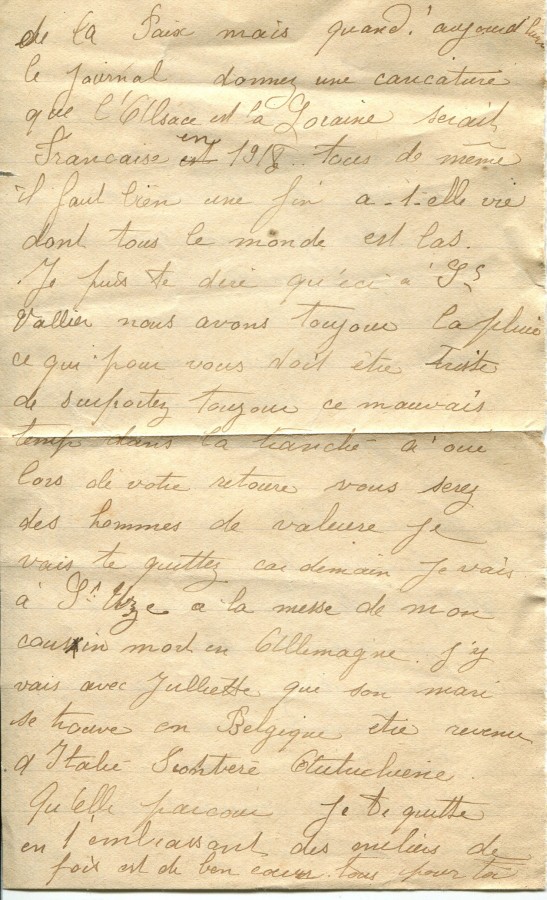 de la Paix mais quand. aujourd'hui
le journal donnez une caricature
que l'Alsace est la Loraine serait
Francaise en 1918.. tous de même
il faut bien une fin a-t-elle vie
dont tous le monde est las.
Je puis te dire qu'ici a St
Vallier nous avons toujour la pluie
ce qui pour vous doit être triste
de suportez toujour ce mauvais
temp dans la tranché a' oui
lors de votre retoure vous serez
des hommes de valeure je
vais te quittez car demain je vais
à St Uze a la messe de mon
cousin mort en Allemagne. j'y
vais avec Julliette que son mari
se trouve en Belgique etre revenu
d Italie Frontére Autuchiene.
Qu'elle parcour je te quitte
en t'embrassant des miliers de
fois est de bon cœur. tous pour ta